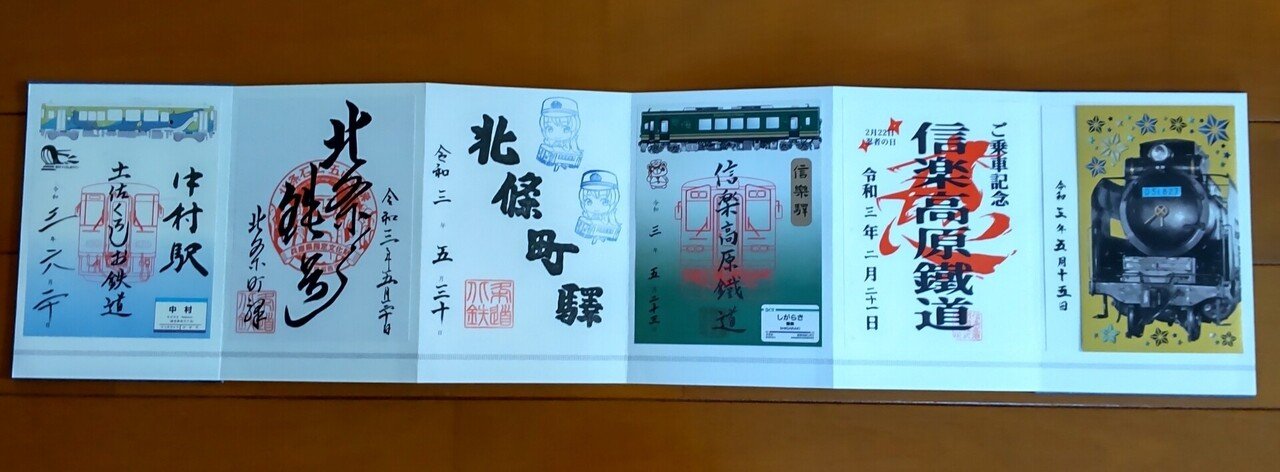 中村駅
土佐くろしお鉄道
中村
北条鉄道
北条町驛
北條町驛
令和三年五月三十日
信樂驛
信樂高原鐵道
令和三年五月二十三日
しがらき
信楽
SHIGARAKI
ご乗車記念
信楽高原鐵道
2月22日
忍者の日
令和三年二月二十一日
D51827
令和三年五月十五日